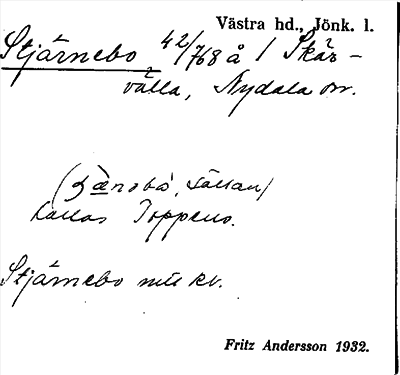 Västra hd., Jönk. l.
Stjärnebo 42/768 å / Skär-
välla, Nydala sn.
sällan/
kallas Toppens.
Stjärnebo mtl kr.
Fritz Andersson 1932.